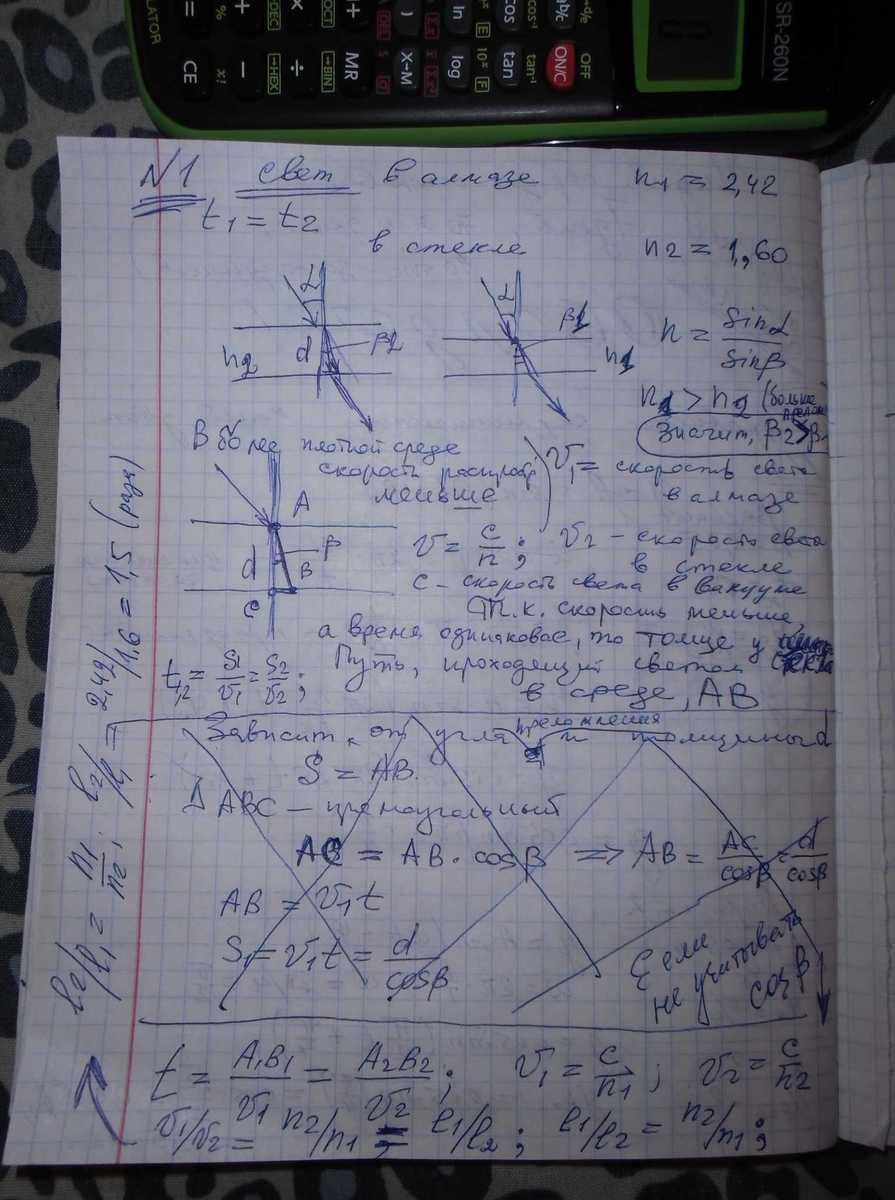 SR-260N
OFF
ON/C
cos⁻¹
tan⁻¹
cos
tan
ln
log
10ˣ
E
F
)
X-M
MR
→OCT
→BIN
→HEX
DEC
×
÷
+
−
=
%
CE
№1 Свет в алмазе n1 = 2,42
t1 = t2
в стекле n2 = 1,60
α α
n2 d β2 β1 n1
n = sinα/sinβ
n1 > n2 (больше
Значит, β2 > β1
В более плотной среде
скорость распростр
меньше
V1 = скорость света
в алмазе
A
d β B
C
V = c/n; V2 - скорость света
в стекле
c - скорость света в вакууме
Т.к. скорость меньше,
а время одинаковое, то толще у
t1,2 = S1/V1 = S2/V2; Путь, проходящий светом
в среде, AB
Зависит от угла преломления и толщины d
S = AB.
Δ ABC – прямоугольный
AC = AB · cosβ => AB = AC/cosβ = d/cosβ
AB = V1t
S1 = V1t = d/cosβ
Если
не учитывать
cosβ
t = A1B1/V1 = A2B2/V2; V1 = c/n1; V2 = c/n2
V1/V2 = n2/n1 = l1/l2; l1/l2 = n2/n1;
l2/l1 = n1/n2; l2/l1 = 2,42/1,6 = 1,5 (раза)